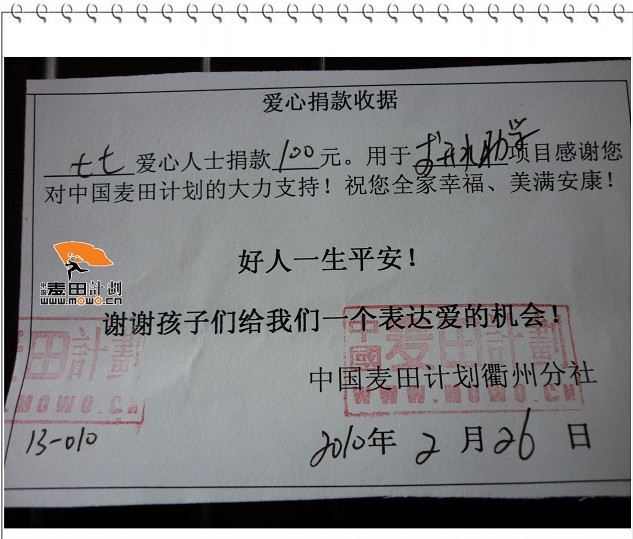 爱心捐款收据
七七 爱心人士捐款 100 元。用于 开化助学 项目感谢您
对中国麦田计划的大力支持！祝您全家幸福、美满安康！
好人一生平安！
中国麦田計劃
www.mowo.cn
谢谢孩子们给我们一个表达爱的机会！
麦田計劃
WWW.MOWO.CN
中國麦田計劃
WWW.MOWO.CN
中国麦田计划衢州分社
13-010
2010年 2 月 26 日